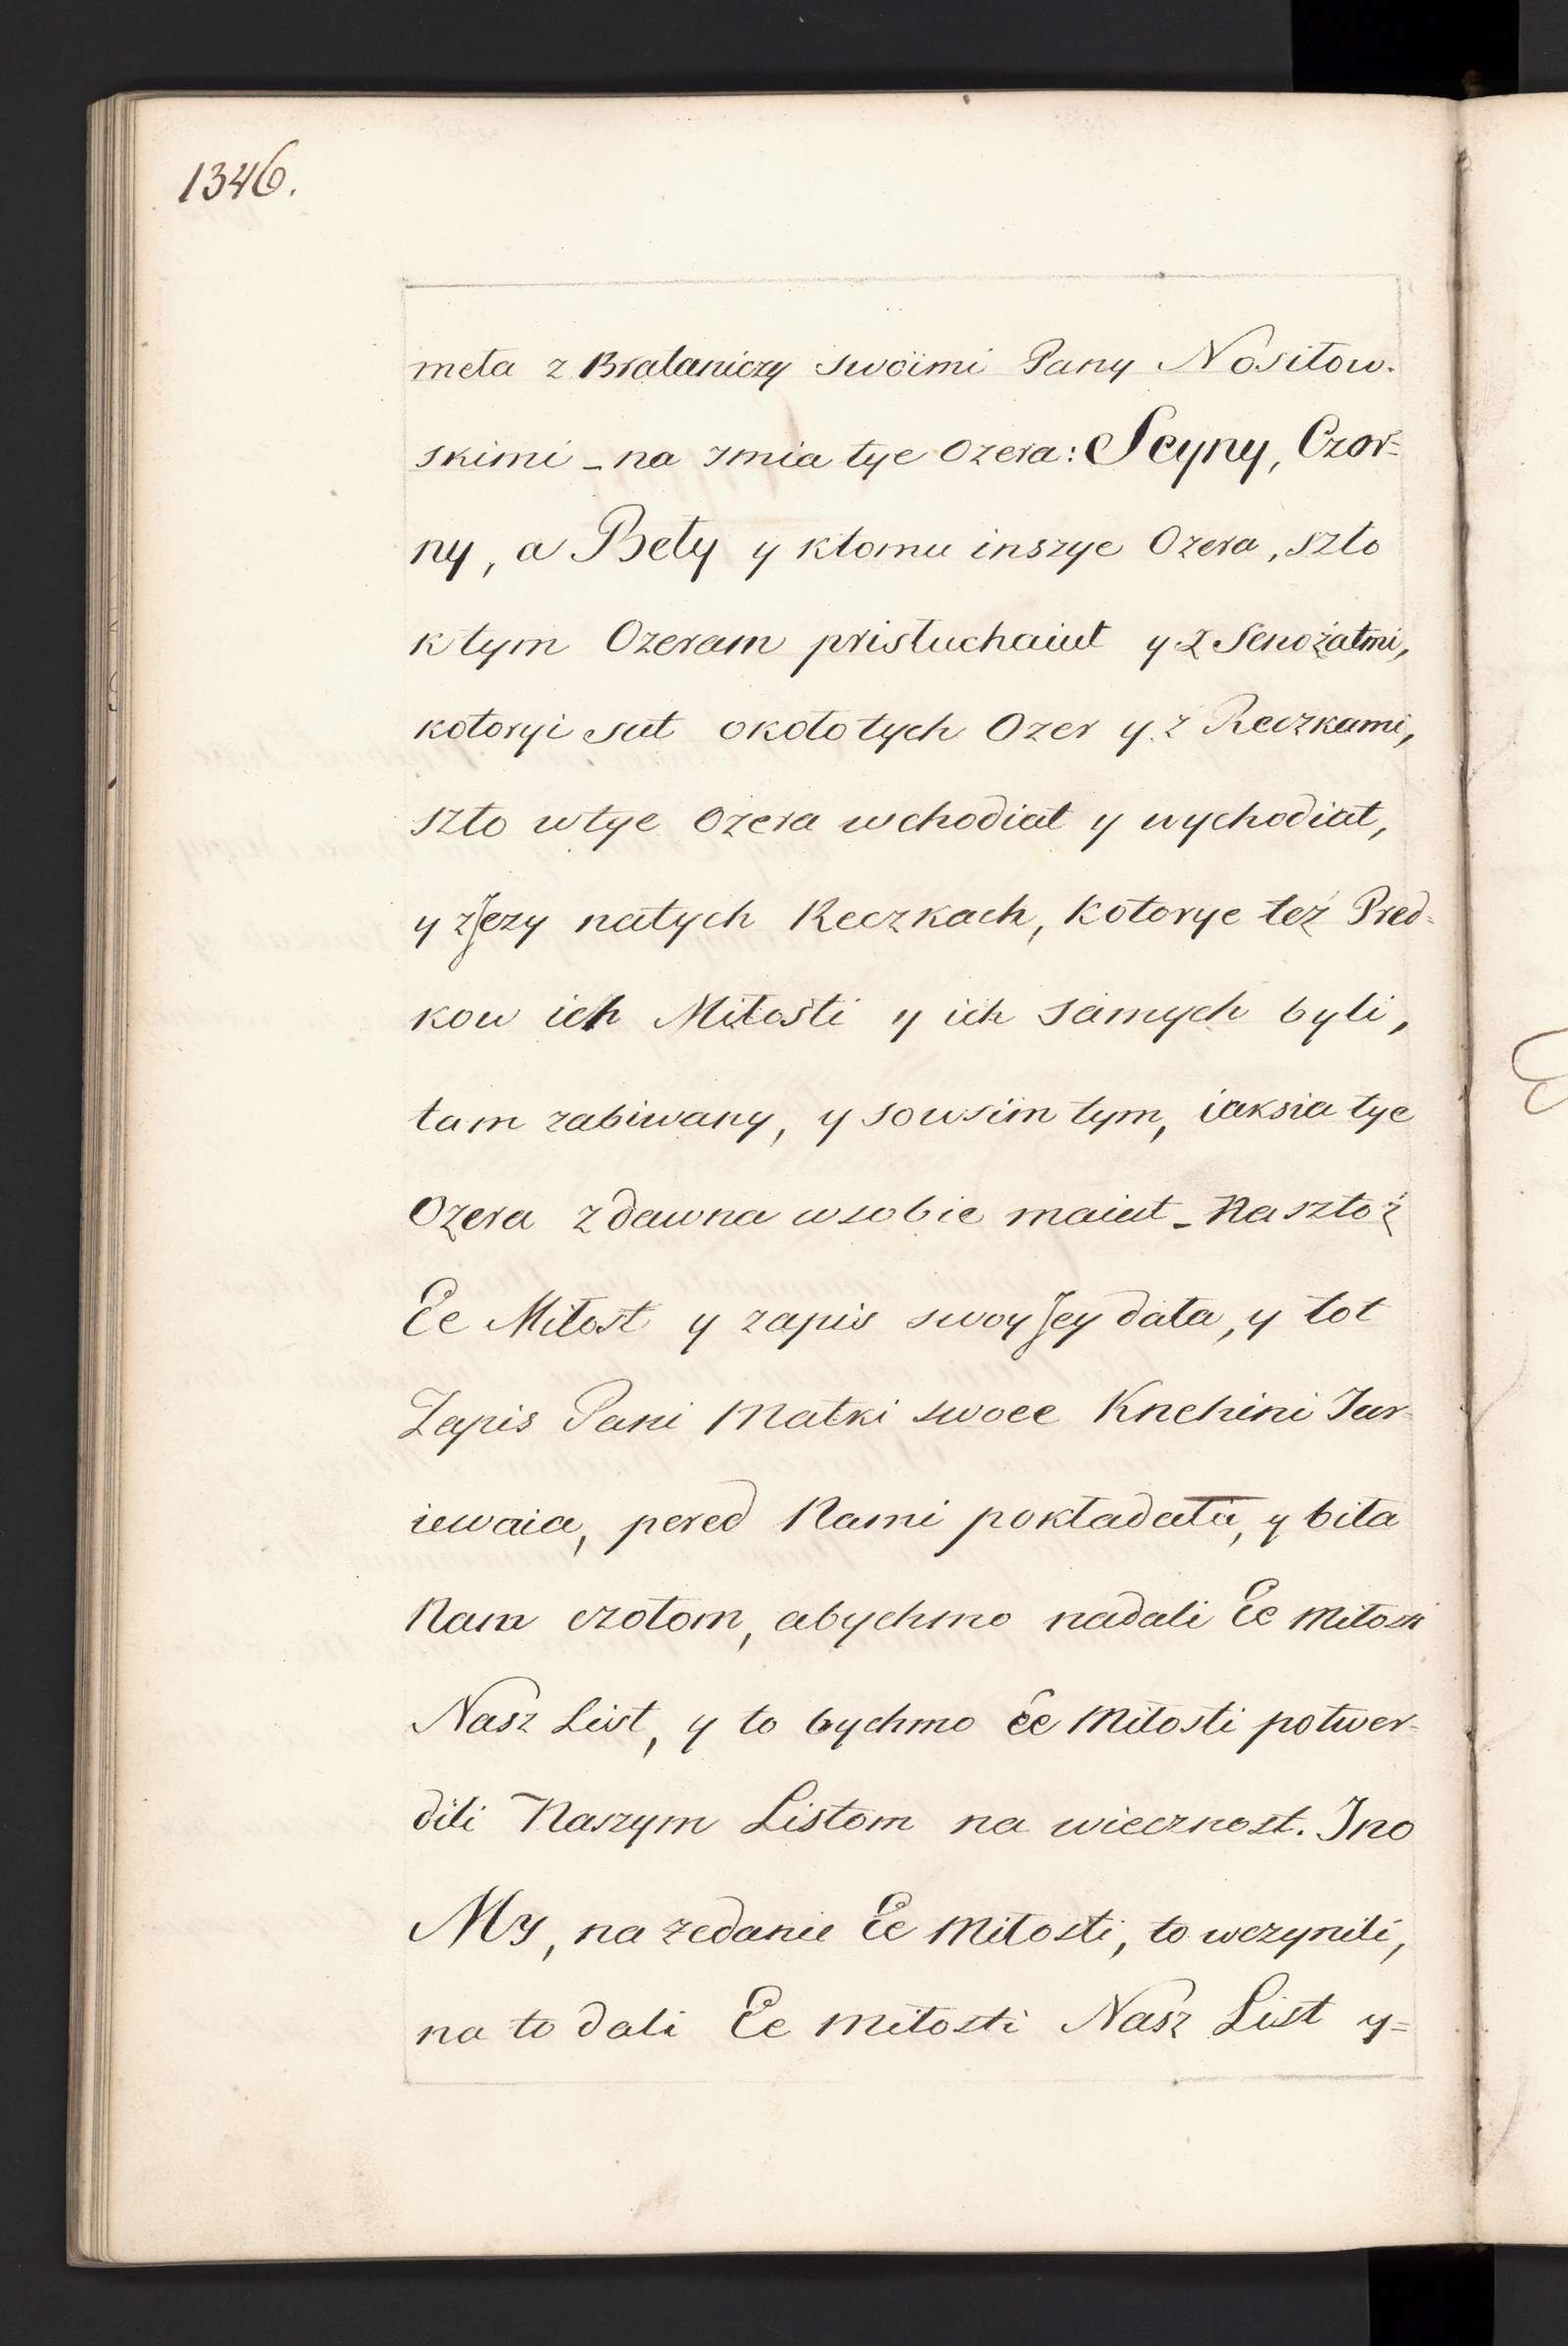 1346.
meła z Brataniczy swoimi Pany Nosiłow-
skimi – na imia tye Ozera: Seyny, Czor=
ny, a Beły y ktomu inszye Ozera, szto
ktym Ozeram prisłuchaiut y z Senożatmi,
kotoryi sut około tych Ozer y z Reczkami,
szto wtye Ozera wchodiat y wychodiat,
y z Jezy natych Reczkach, kotorye też Pred-
kow ich Miłosti y ich samych byli,
tam zabiwany, y sowsim tym, iaksia tye
Ozera zdawna wsobie maiut – Na sztoż
Ee Miłost y zapis swoy Jey dała, y tot
Zapis Pani Matki swoee Knehini Jur-
iewaia, pered Nami pokładała, y biła
Nam czołom, abychmo nadali Ee Miłosti
Nasz List, y to bychmo Ee Miłosti potwer-
dili Naszym Listom na wiecznost. Ino
My, na żedanie Ee Miłosti, to wczynili,
na to dali Ee Miłosti Nasz List y=